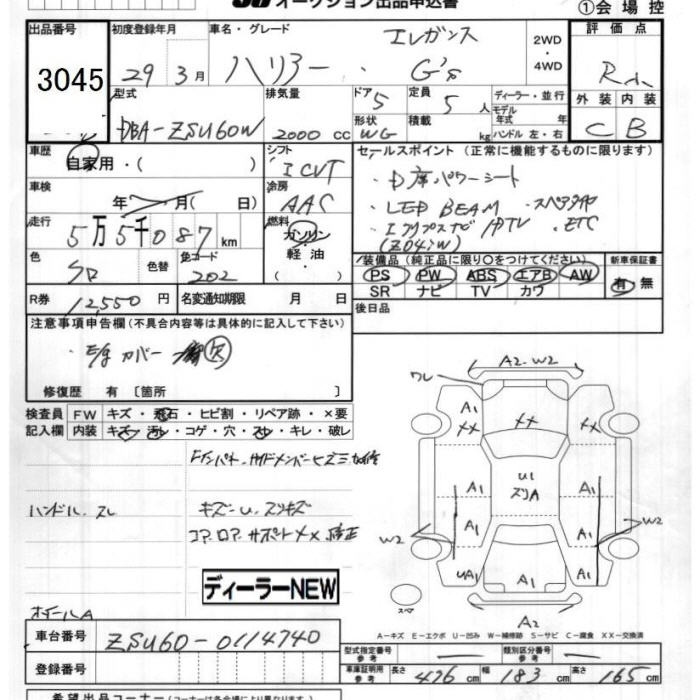 オークション出品申込書
①会場控
出品番号
3045
初度登録年月
29年3月
車名・グレード
ハリアー・エレガンス G's
2WD・4WD
評価点
外装 内装
C B
型式
DBA-ZSU60W
排気量
2000cc
ドア 5
形状 WG
定員 5人
積載 kg
ディーラー・並行
モデル年式 年
ハンドル 左・右
車歴
自家用・( )
シフト
ICVT
冷房
AAC
車検
年 月( 日)
走行
5万5千087km
燃料
ガソリン
軽油
・( )
色
クロ
色替
色コード
202
R券 12,550円
名変通知期限 月 日
セールスポイント(正常に機能するものに限ります)
・D席パワーシート
・LED BEAM ・スペアタイヤ
・エクリプスナビ 地TV ・ETC
(Z04iW)
装備品(純正品に限り○をつけてください)
PS PW ABS エアB AW
SR ナビ TV カワ
新車保証書
有 無
後日品
注意事項申告欄(不具合内容等は具体的に記入して下さい)
・E/gカバー 欠
修復歴 有〔箇所 〕
検査員記入欄
FW キズ・飛石・ヒビ割・リペア跡・×要
内装 キズ・汚レ・コゲ・穴・スレ・キレ・破レ
ハンドル スレ
キズ-U スリキズ
コアロアサポート××修正
ディーラーNEW
ホイールA
A2・W2
ワレ
A1 ××
××
A1 ××
A1
U1 スリA
A1
W2
A1
A1
W2
UA1
A1
A1
スペア
A2
A-キズ E-エクボ U-凹み W-補修跡 S-サビ C-腐食 XX-交換済
車台番号
ZSU60-0114740
登録番号
型式指定番号 参考
類別区分番号 参考
車庫証明用 参考
長さ 476cm 幅 183cm 高さ 165cm
希望出品コーナー